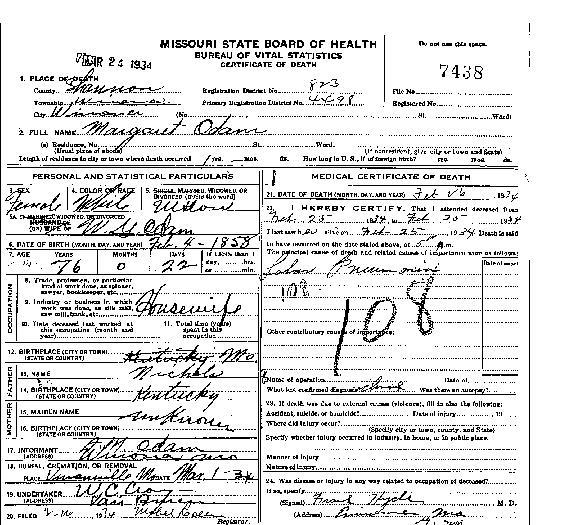 MISSOURI STATE BOARD OF HEALTH
BUREAU OF VITAL STATISTICS
CERTIFICATE OF DEATH
Do not use this space.
MAR 24 1934
7438
1. PLACE OF DEATH
County Shannon Registration District No. 823 File No.
Township Primary Registration District No. 4498 Registered No.
City Winona (No. St. Ward)
2. FULL NAME Margaret Odam
(a) Residence, No. St. Ward.
(Usual place of abode) (If nonresident, give city or town and State)
Length of residence in city or town where death occurred 1 yrs. mos. ds. How long in U. S., if of foreign birth? yrs. mos. ds.
PERSONAL AND STATISTICAL PARTICULARS
3. SEX 4. COLOR OR RACE 5. SINGLE, MARRIED, WIDOWED, OR DIVORCED (write the word)
Female White Widow
5A. IF MARRIED, WIDOWED, OR DIVORCED
HUSBAND OF
(OR) WIFE OF Odam
6. DATE OF BIRTH (MONTH, DAY, AND YEAR) Feb. 4 - 1858
7. AGE YEARS MONTHS DAYS If LESS than 1
76 0 22 day, hrs.
or min.
OCCUPATION
8. Trade, profession, or particular
kind of work done, as spinner,
sawyer, bookkeeper, etc.
9. Industry or business in which
work was done, as silk mill,
saw mill, bank, etc. Housewife
10. Date deceased last worked at
this occupation (month and
year)
11. Total time (years)
spent in this
occupation
12. BIRTHPLACE (CITY OR TOWN)
(STATE OR COUNTRY) Kentucky
FATHER
13. NAME Nichols
14. BIRTHPLACE (CITY OR TOWN)
(STATE OR COUNTRY) Kentucky
MOTHER
15. MAIDEN NAME Unknown
16. BIRTHPLACE (CITY OR TOWN)
(STATE OR COUNTRY)
17. INFORMANT Odam
(ADDRESS) Winona
18. BURIAL, CREMATION, OR REMOVAL
PLACE DATE Mar. 1 - 34
19. UNDERTAKER
(ADDRESS) Van Buren
20. FILED 1934
Registrar.
MEDICAL CERTIFICATE OF DEATH
21. DATE OF DEATH (MONTH, DAY, AND YEAR) Feb 26 1934
22. I HEREBY CERTIFY, That I attended deceased from
Feb. 25 1934, to Feb 25 1934
I last saw alive on Feb 25 1934 Death is said
to have occurred on the date stated above, at m.
The principal cause of death and related causes of importance were as follows:
Date of onset
Lobar Pneumonia
108
108
Other contributory causes of importance:
Name of operation Date of
What test confirmed diagnosis? Was there an autopsy?
23. If death was due to external causes (violence), fill in also the following:
Accident, suicide, or homicide? Date of injury 19
Where did injury occur?
(Specify city or town, county, and State)
Specify whether injury occurred in industry, in home, or in public place.
Manner of injury
Nature of injury
24. Was disease or injury in any way related to occupation of deceased?
If so, specify
(Signed) Frank Hyde M. D.
(Address)